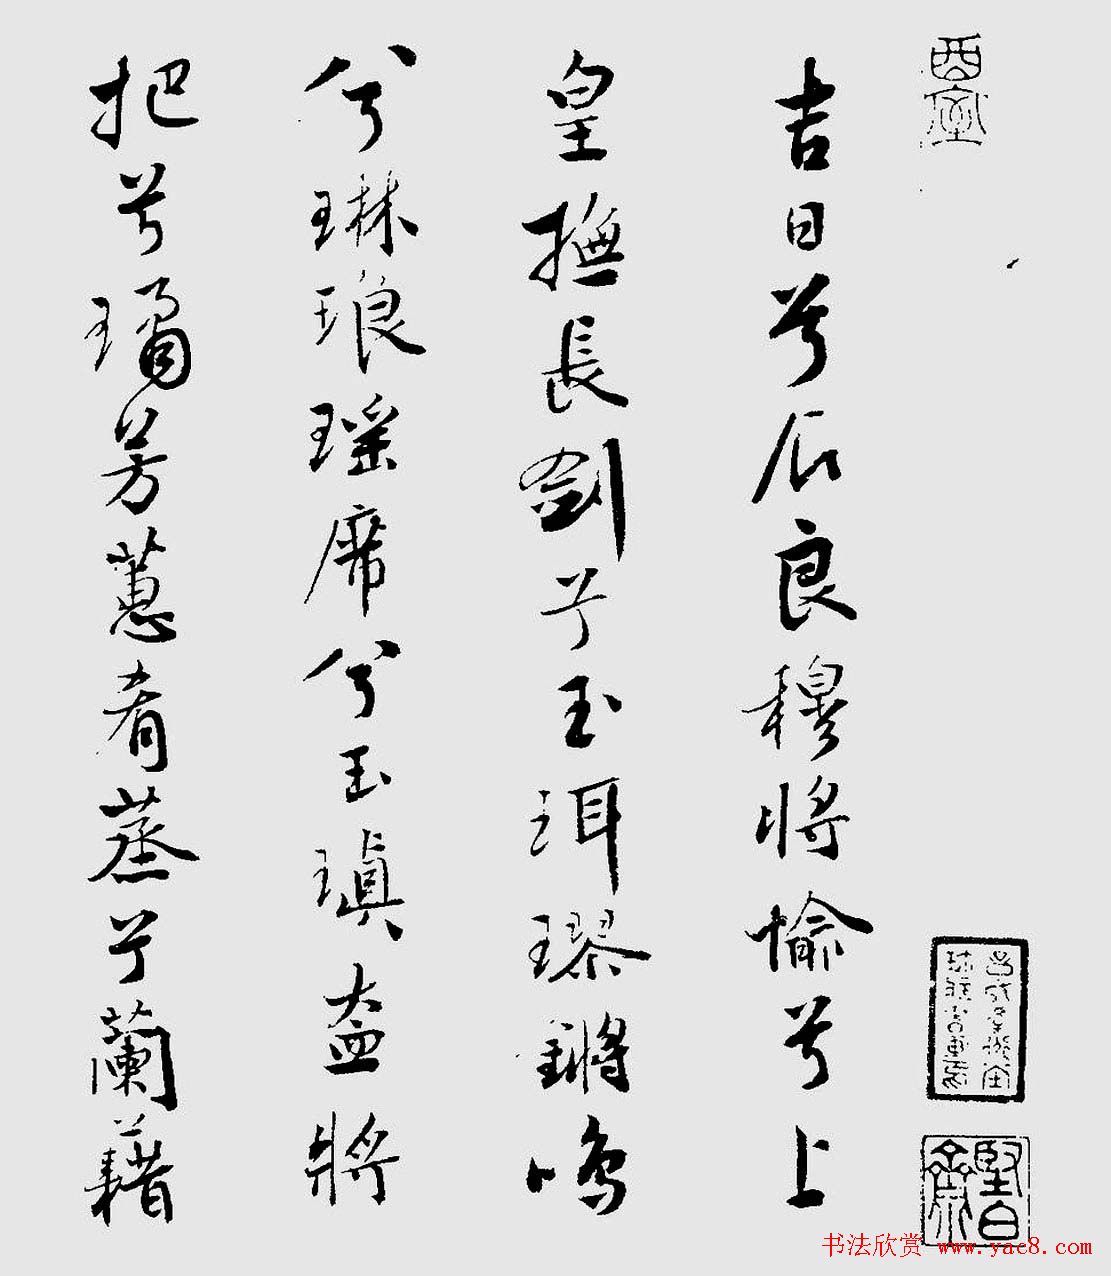 酉室
吉日兮辰良穆將愉兮上
皇撫長劍兮玉珥璆鏘鳴
兮琳琅瑤席兮玉瑱盍將
把兮璚芳蕙肴蒸兮蘭藉
堅白齋
书法欣赏 www.yac8.com